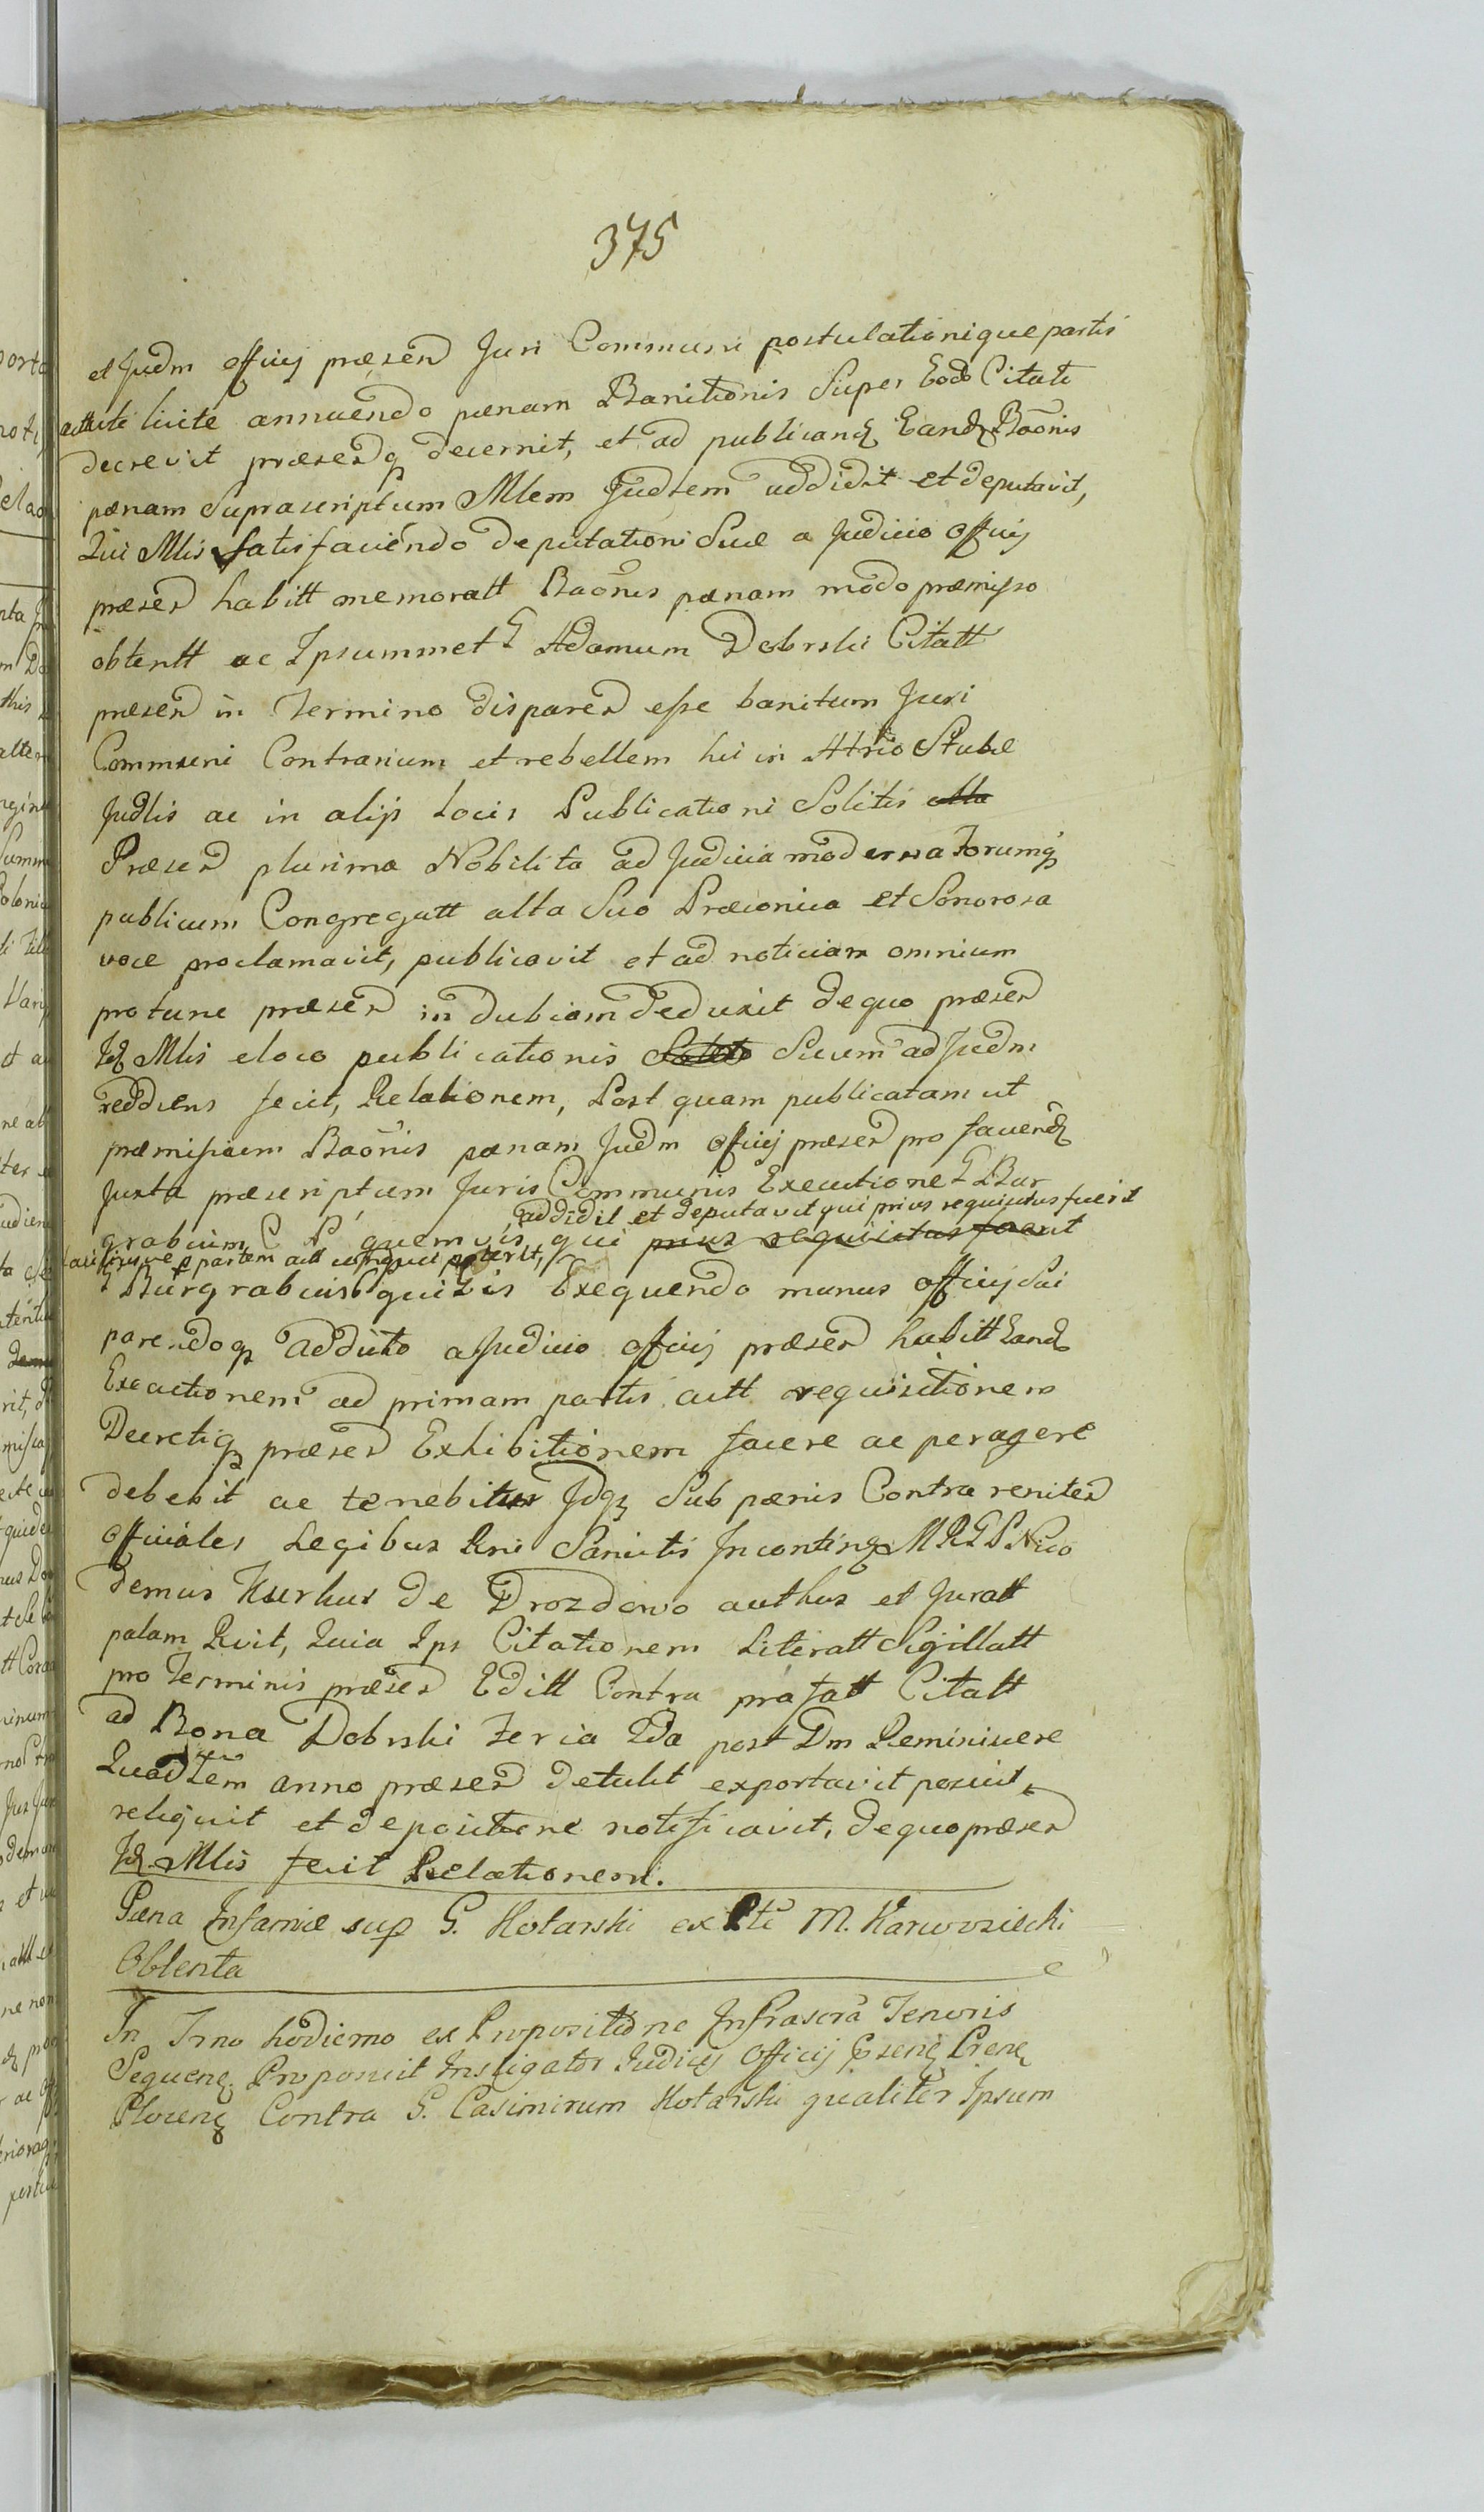 375
et Judm officij præsen Juri Communi postulationique partis
actt ute licite annuendo pœnam Banitionis Super Eod Citato
decrevit præsenq decernit, et ad publicand Eand Baõnis
pœnam Suprascriptum Mlem Judlem addidit et deputavit,
Qui Mlis Satisfaciendo deputationi Suæ a Judicio officij
præsen habitt memoratt Baõnis pœnam modo præmisso
obtentt ac Ipsummet G Adamum Dobrski Citatt
præsen in Termino disparen esse banitum Juri
Communi Contrarium et rebellem hic in Atrio Stubæ
Judlis ac in alijs Locis Publicationi Solitis alta
Præsen plurima Nobilita ad Judicia moderna Forumq
publicum Congregatt alta Sua Præconica et Sonorosa
voce proclamavit, publicavit et ad noticiam omnium
protunc præsen indubiam deduxit de quo præsen
Id Mlis eloco publicationis Suum ad Judm
reddiens fecit, Relationem, Post quam publicatam ut
præmissum Baõnis pœnam Judm officij præsen pro faciend
Juxta præscriptum Juris Communis Executione G Bur
addidit et deputavit qui prius requisitus fuerit
grabium C P quemvis, qui prius requisitus fuerit
Burgrabius quivis Exequendo munus officij Sui
parendoq addicto a Judicio officij præsen habitt Eand
Exactionem ad primam partis actt requisitionem
Decretiq præsen Exhibitionem facere ac peragere
debebit ac tenebitur Idq Sub pœnis Contra reniten
officiales Legibus Rni Sancitis Incontinq M R G P Nico
demus Kurkus de Drozdowo authus et Juratt
palam Rvit, Quia Ips Citationem Literatt Sigillatt
pro Terminis præsen Editt Contra præfatt Citatt
ad Bona Dobrski Feria 2da post Dm Reminiscere
Quadlem anno præsen detulit exportavit posuit,
reliquit et depositione notificavit, de quo præsen
Id Mlis fecit Relationem.
Pæna Infamiæ sup G. Kotarski ex Pte M. Karwosiecki
Obtenta
In Trno hodierno ex Propositione Infrascra Tenoris
Sequen, Proposuit Instigator Judicij Officij Psen Pren
Plocen Contra G. Casimirum Kotarski qualiter Ipsum